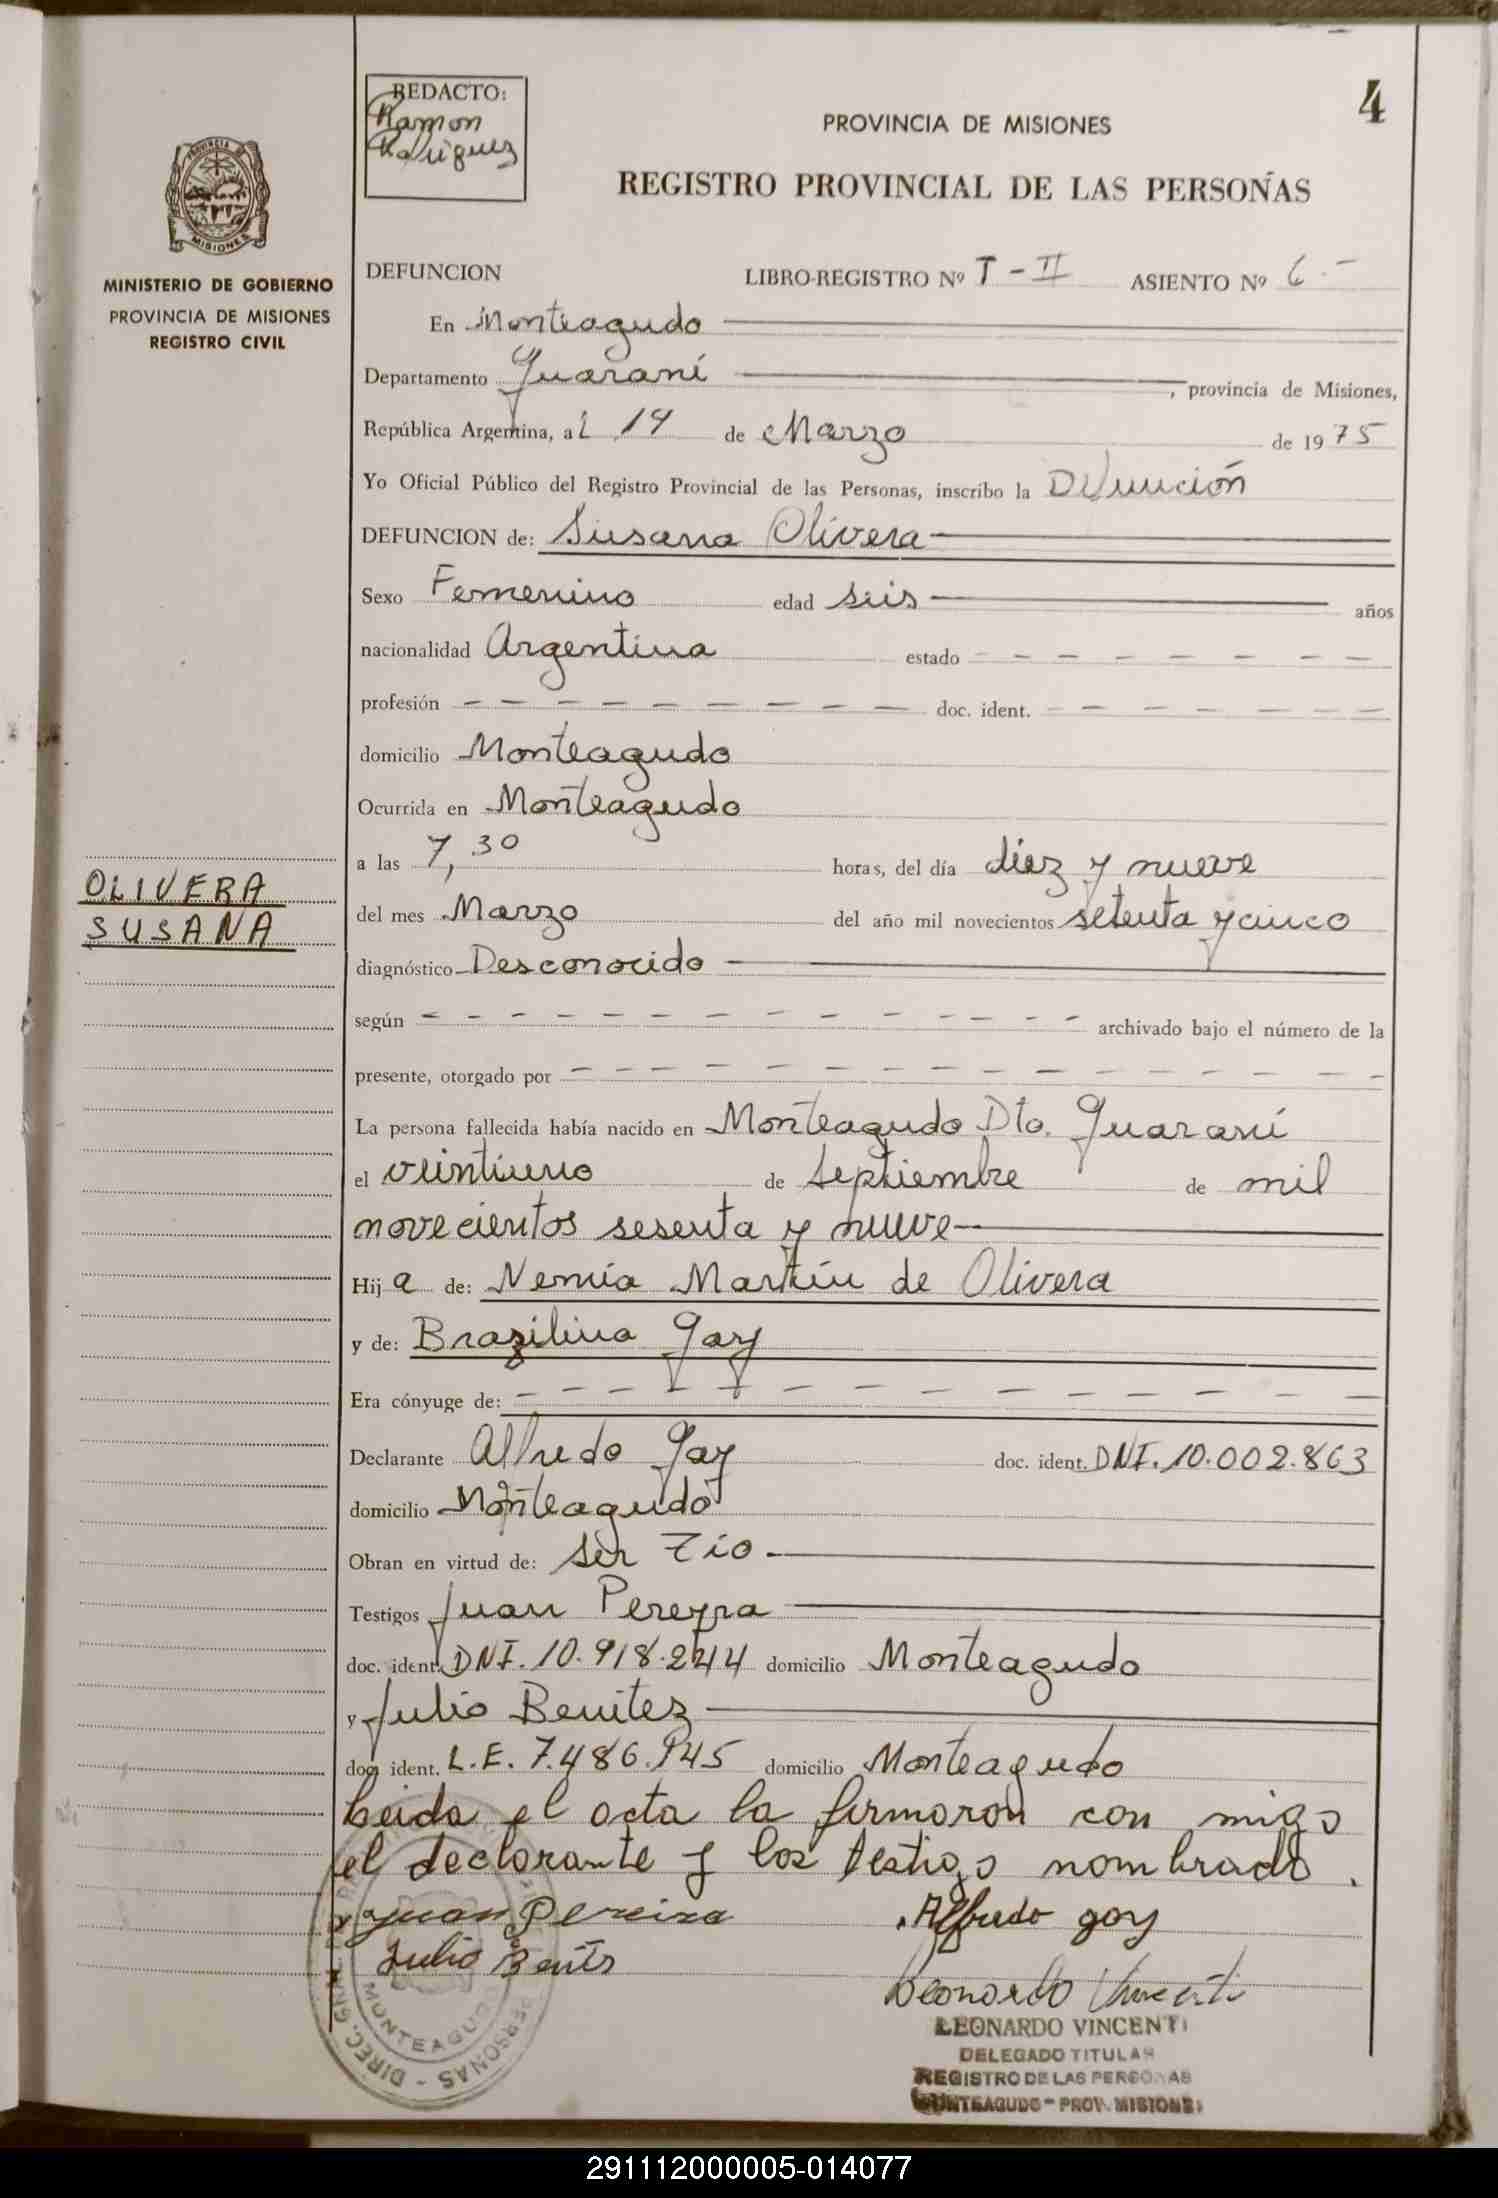 4
REDACTO:
Ramon
Rodriguez
PROVINCIA DE MISIONES
REGISTRO PROVINCIAL DE LAS PERSONAS
PROVINCIA DE
MISIONES
MINISTERIO DE GOBIERNO
PROVINCIA DE MISIONES
REGISTRO CIVIL
DEFUNCION LIBRO-REGISTRO Nº T - II ASIENTO Nº 6.-
En Monteagudo
Departamento Guaraní, provincia de Misiones,
República Argentina, al 19 de Marzo de 1975
Yo Oficial Público del Registro Provincial de las Personas, inscribo la Defunción
DEFUNCION de: Susana Olivera
Sexo Femenino edad seis años
nacionalidad Argentina estado - - - - - - - -
profesión - - - - - - - - - doc. ident. - - - - - - -
domicilio Monteagudo
Ocurrida en Monteagudo
a las 7,30 horas, del día diez y nueve
OLIVERA
SUSANA
del mes Marzo del año mil novecientos setenta y cinco
diagnóstico Desconocido
según - - - - - - - - - - - - - - archivado bajo el número de la
presente, otorgado por - - - - - - - - - - - - - - - -
La persona fallecida había nacido en Monteagudo Dto. Guaraní
el veintiuno de septiembre de mil
novecientos sesenta y nueve
Hija de: Nemia Martín de Olivera
y de: Brazilina Gay
Era cónyuge de: - - - - - - - - - - - - - - -
Declarante Alfredo Gay doc. ident. DNI. 10.002.863
domicilio Monteagudo
Obran en virtud de: ser Tio.
Testigos Juan Pereyra
doc. ident. DNI. 10.918.244 domicilio Monteagudo
y Julio Benitez
doc. ident. L.E. 7.486.945 domicilio Monteagudo
Leida el acta la firmaron con migo
el declarante y los testigo nombrado.
Juan Pereira Alfredo gay
Julio
Leonardo Vincenti
LEONARDO VINCENTI
DELEGADO TITULAR
REGISTRO DE LAS PERSONAS
MONTEAGUDO - PROV. MISIONES
MONTEAGUDO
DIREC. GRAL. PERSONAS
291112000005-014077